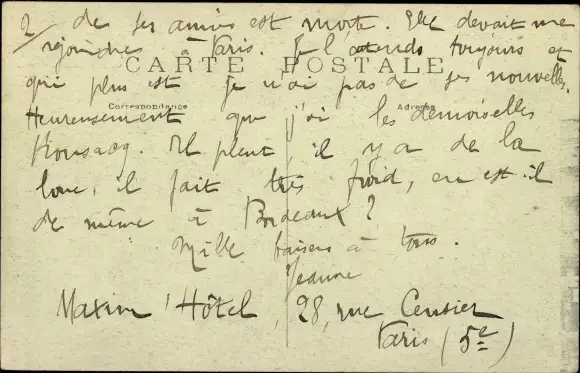 2/ de ses amies est morte. Elle devait me
rejoindre à Paris. Je l'attends toujours et
CARTE POSTALE
qui plus est je n'ai pas de ses nouvelles.
Correspondance Adresse
Heureusement que j'ai les demoiselles
Il pleut il y a de la
boue, il fait très froid, en est-il
de même à Bordeaux ?
Mille baisers à tous.
Jeanne
Maxim' Hôtel, 28, rue Censier
Paris (5e)